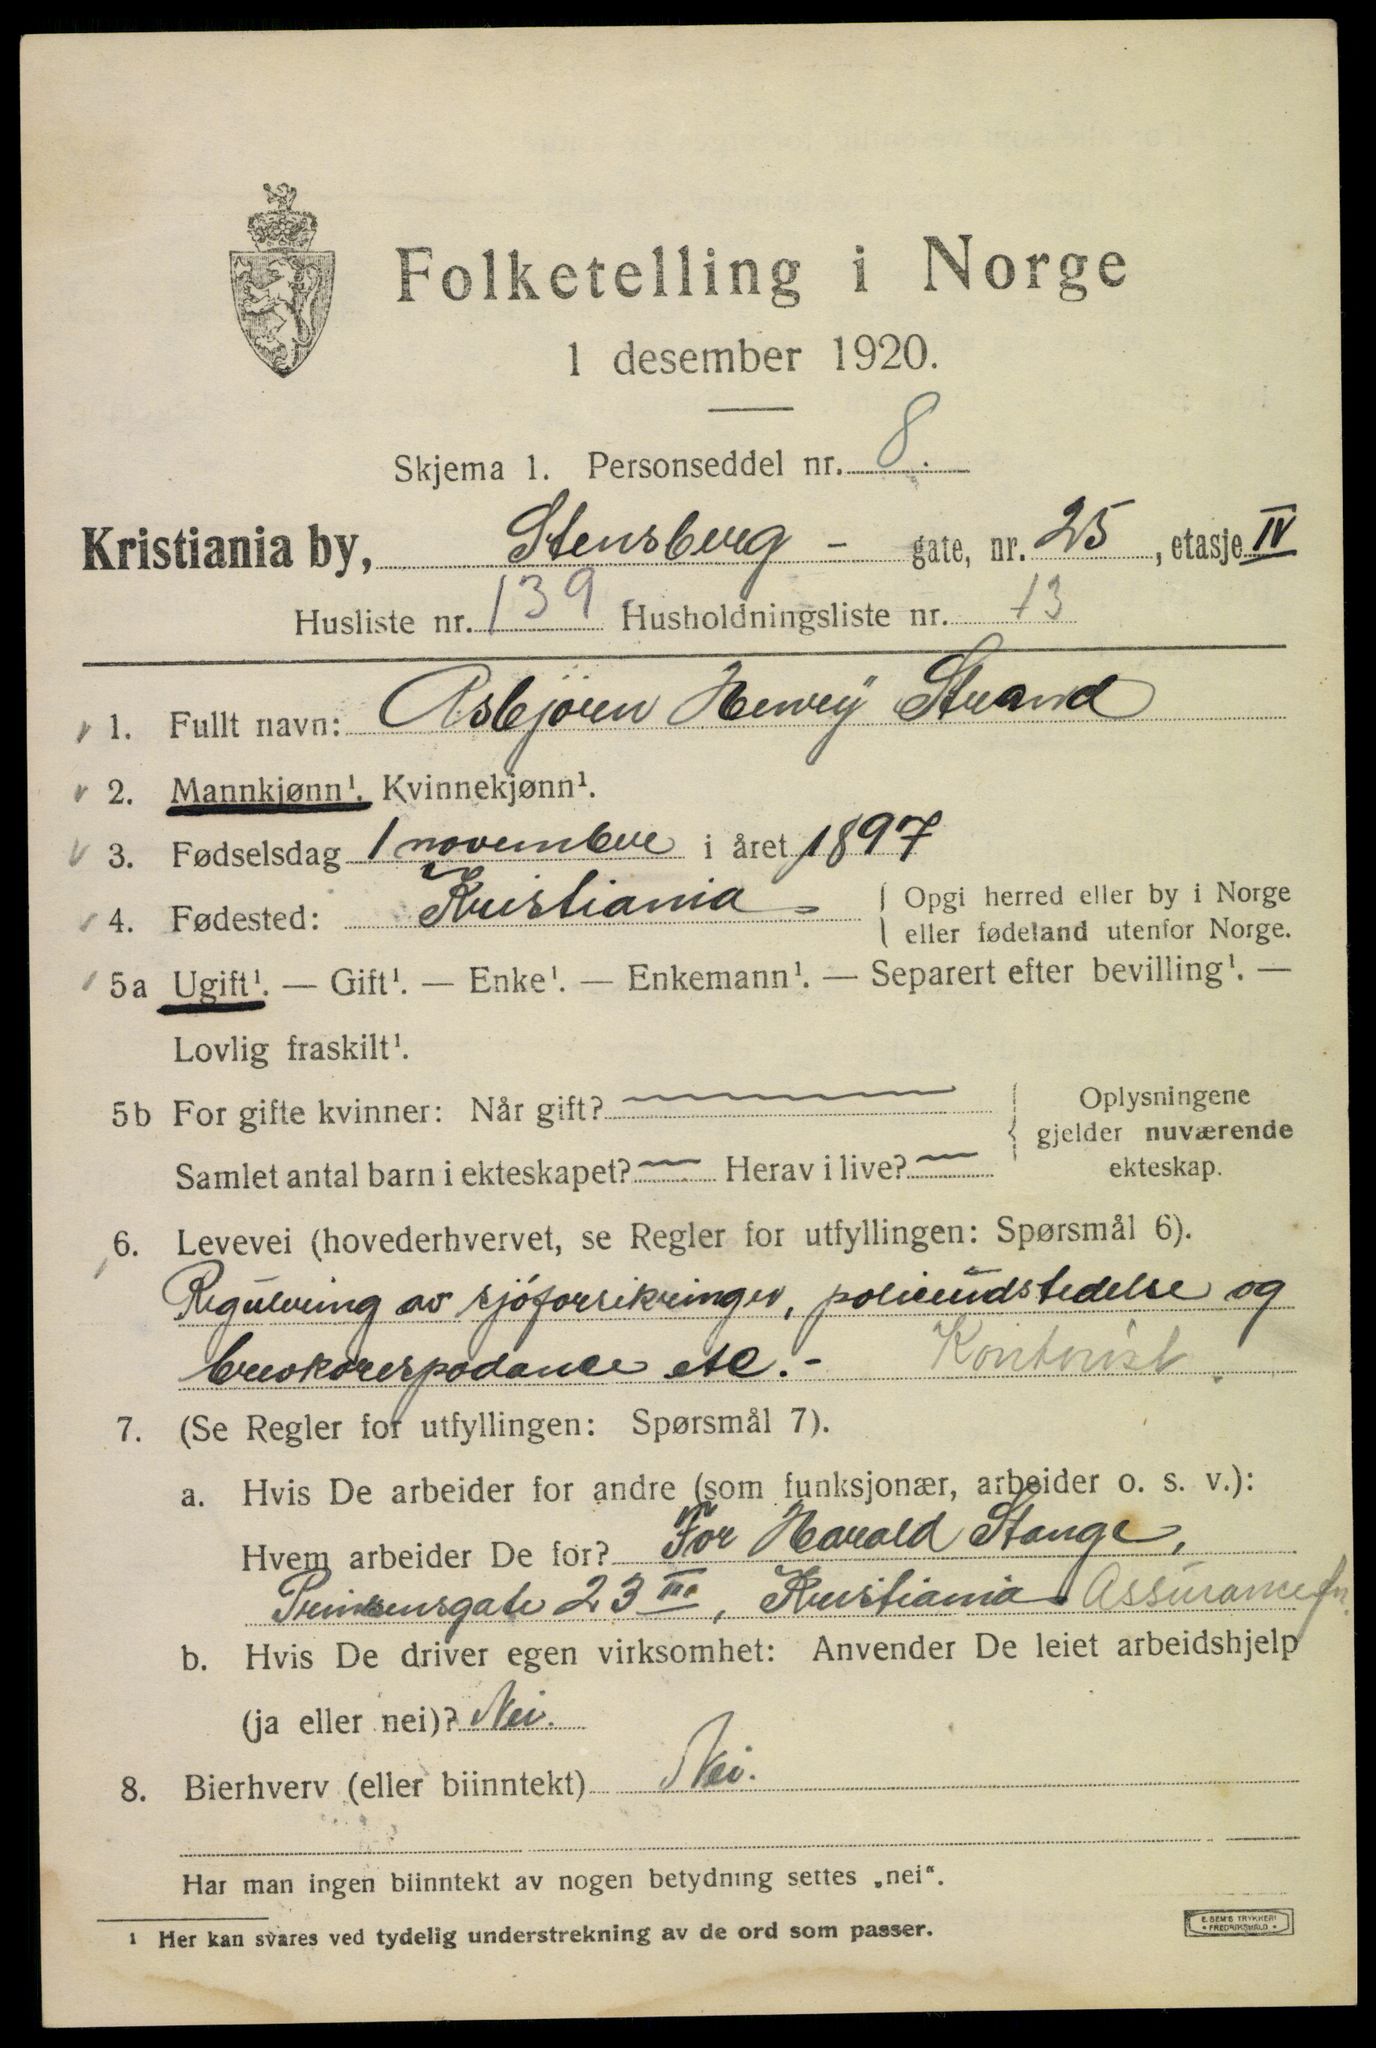 Folketelling i Norge
1 desember 1920.
Skjema 1. Personseddel nr. 8.
Kristiania by, Stensberg - gate, nr. 25, etasje IV
Husliste nr. 139 Husholdningsliste nr. 13
1. Fullt navn: Asbjörn Henry Strand
2. Mannkjønn¹. Kvinnekjønn¹.
3. Fødselsdag 1 november i året 1897
4. Fødested: Kristiania
{ Opgi herred eller by i Norge
eller fødeland utenfor Norge.
5a Ugift¹. — Gift¹. — Enke¹. — Enkemann¹. — Separert efter bevilling¹. —
Lovlig fraskilt¹.
5b For gifte kvinner: Når gift?
Samlet antal barn i ekteskapet? — Herav i live? —
{ Oplysningene
gjelder nuværende
ekteskap.
6. Levevei (hovederhvervet, se Regler for utfyllingen: Spørsmål 6).
Regulering av sjöforsikringer, policeudstedelse og
brevkorespodance etc. - Kontorist
7. (Se Regler for utfyllingen: Spørsmål 7).
a. Hvis De arbeider for andre (som funksjonær, arbeider o. s. v.):
Hvem arbeider De for? For Harald Stange,
Prinsensgate 23 III, Kristiania Assurancefn.
b. Hvis De driver egen virksomhet: Anvender De leiet arbeidshjelp
(ja eller nei)? Nei.
8. Bierhverv (eller biinntekt) Nei.
Har man ingen biinntekt av nogen betydning settes „nei“.
¹ Her kan svares ved tydelig understrekning av de ord som passer.
E. SEM'S TRYKKERI
FREDRIKSHALD